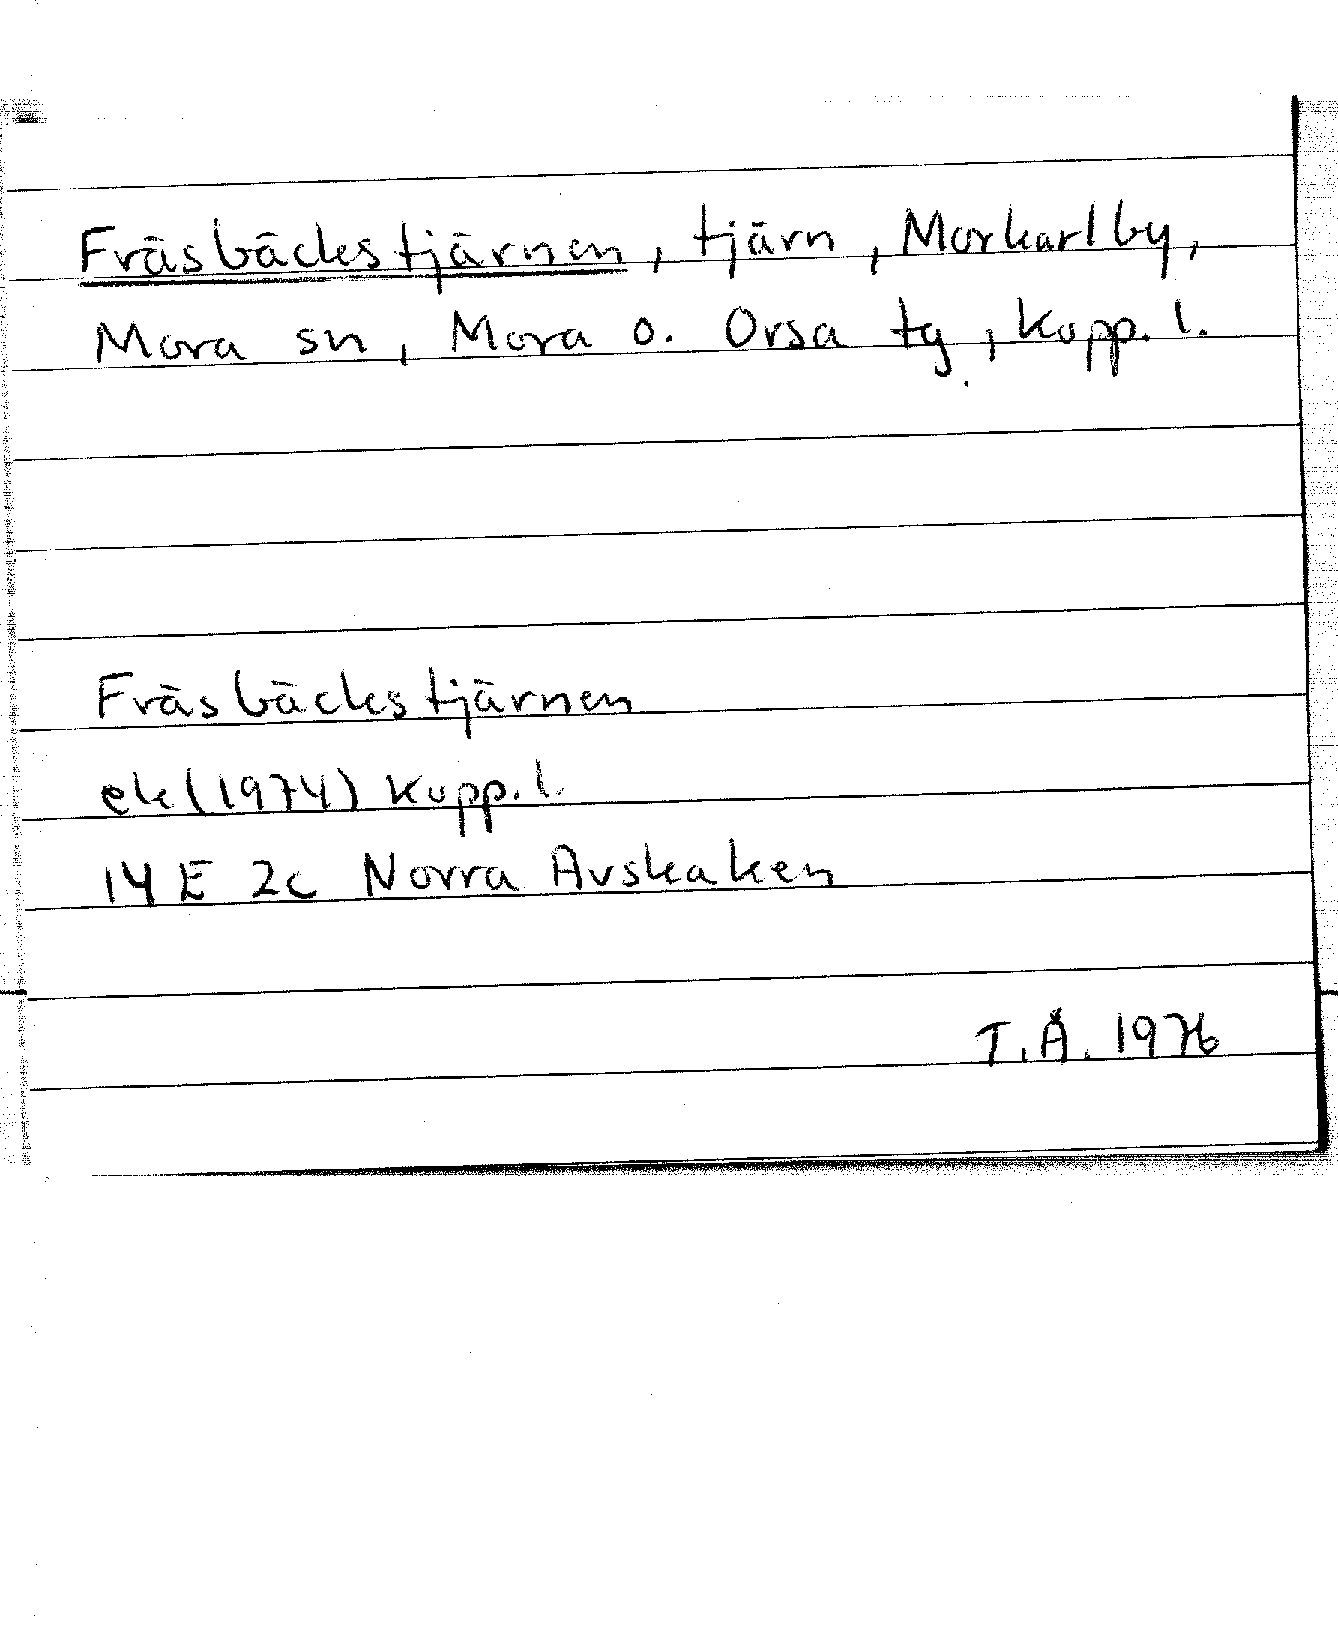 Fräsbäckstjärnen, tjärn, Morkarlby,
Mora sn, Mora o. Orsa tg, Kopp. l.
Fräsbäckstjärnen
ek (1974) Kopp. l.
14 E 2c Norra Avskaken
T.Å. 1976